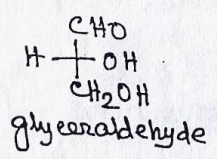 CHO
H OH
CH2OH
glyceraldehyde